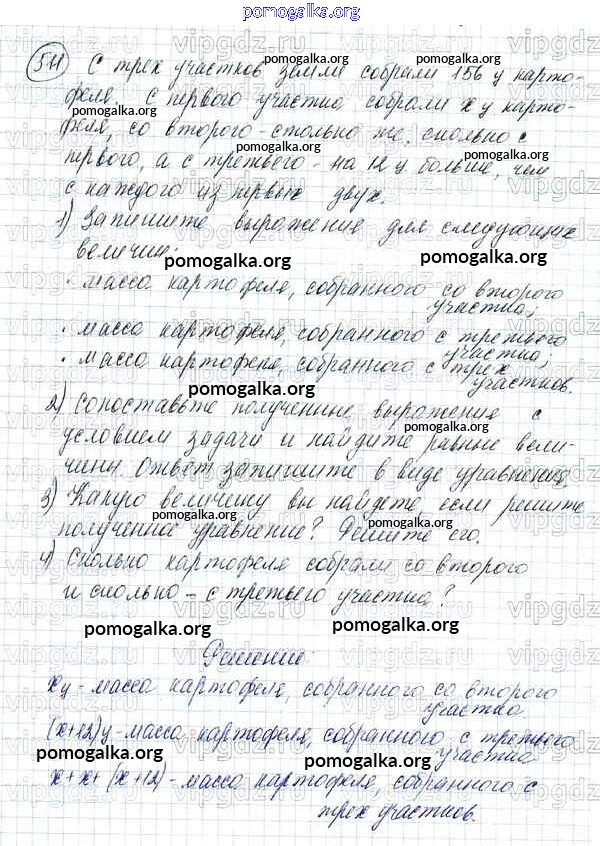 pomogalka.org
511 С трех участков земли собрали 156 ц карто-
феля, с первого участка собрали x ц карто-
феля, со второго - столько же, сколько с
первого, а с третьего - на 12 ц больше, чем
с каждого из первых двух.
1) Запишите выражения для следующих
величин:
· масса картофеля, собранного со второго
участка;
· масса картофеля, собранного с третьего
участка;
· масса картофеля, собранного с трех
участков.
2) Сопоставьте полученные выражения с
условием задачи и найдите равные вели-
чины. Ответ запишите в виде уравнения.
3) Какую величину вы найдете, если решите
полученное уравнение? Решите его.
4) Сколько картофеля собрали со второго
и сколько - с третьего участка?
pomogalka.org pomogalka.org
Решение:
xц - масса картофеля, собранного со второго
участка
(x+12)ц - масса картофеля, собранного с третьего
участка
x+x+(x+12) - масса картофеля, собранного с
трех участков.